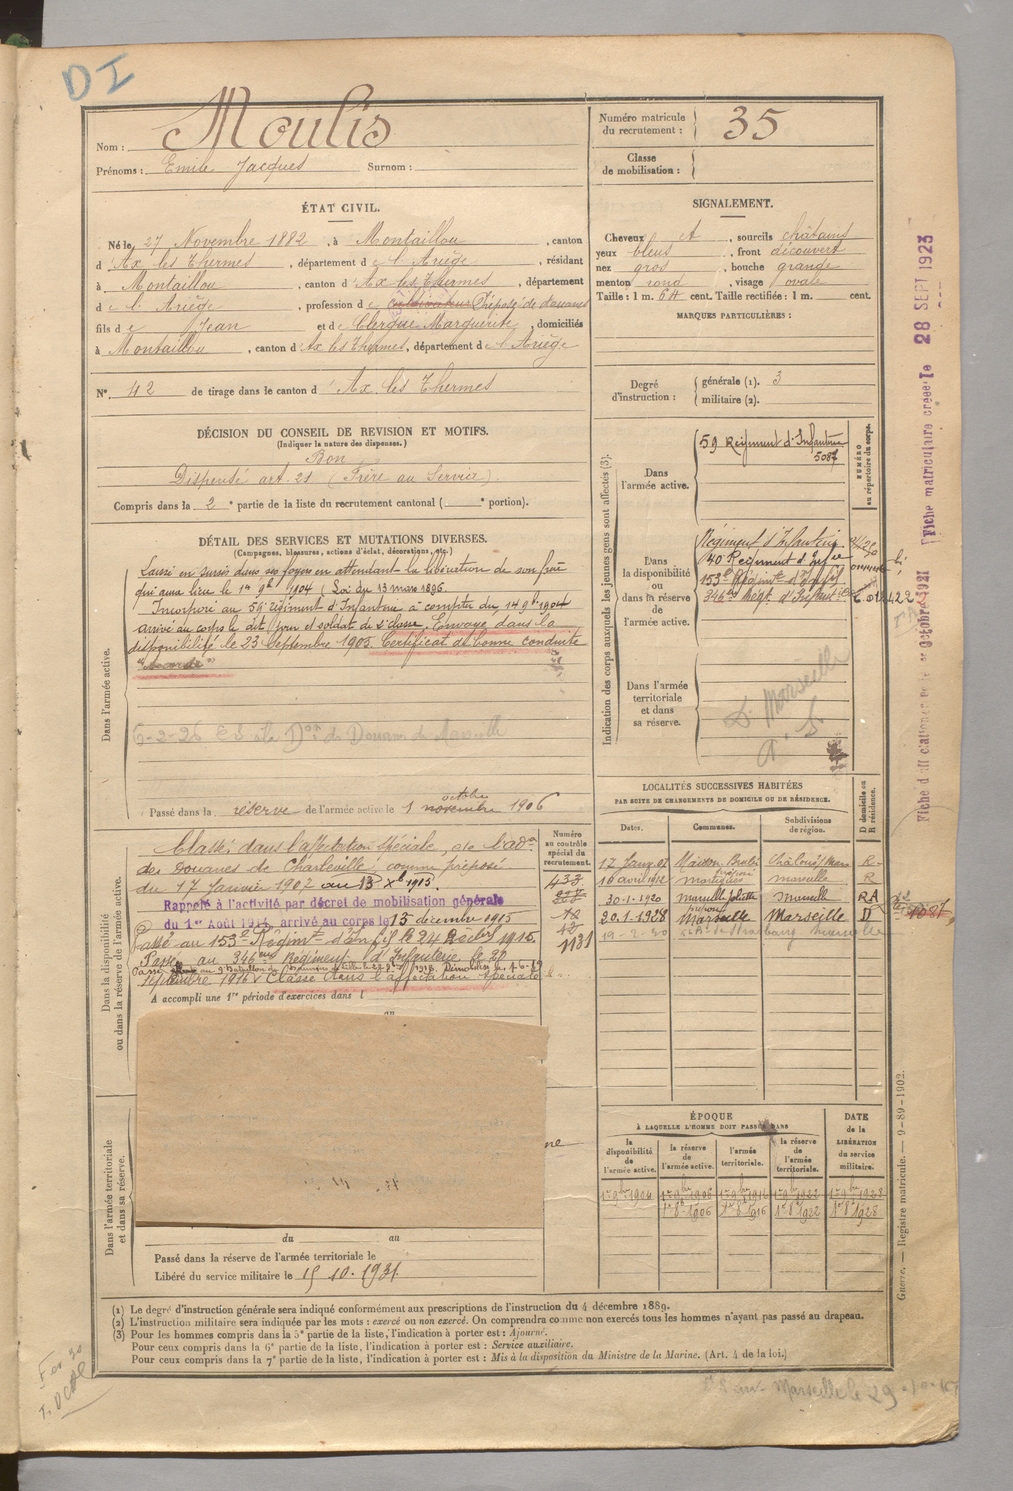 DI
Nom : Moulis
Prénoms : Emile Jacques Surnom :
Numéro matricule du recrutement : 35
Classe de mobilisation :
ÉTAT CIVIL.
Né le 27 Novembre 1882, à Montaillou, canton
d'Ax les Thermes, département de l'Ariège, résidant
à Montaillou, canton d'Ax les Thermes, département
de l'Ariège, profession de cultivateur Préposé de douanes
fils de Jean et de Clergue Marguerite, domiciliés
à Montaillou, canton d'Ax les Thermes, département de l'Ariège
N° 42 de tirage dans le canton d'Ax les Thermes
SIGNALEMENT.
Cheveux et, sourcils châtains
yeux bleus, front découvert
nez gros, bouche grande
menton rond, visage ovale
Taille : 1 m. 64 cent. Taille rectifiée : 1 m. cent.
MARQUES PARTICULIÈRES :
Degré d'instruction : générale (1). 3
militaire (2).
DÉCISION DU CONSEIL DE REVISION ET MOTIFS.
(Indiquer la nature des dispenses.)
Bon
Dispensé art. 21 (Frère au Service)
Compris dans la 2e partie de la liste du recrutement cantonal ( e portion).
DÉTAIL DES SERVICES ET MUTATIONS DIVERSES.
(Campagnes, blessures, actions d'éclat, décorations, etc.)
Dans l'armée active.
Laissé en sursis dans ses foyers en attendant la libération de son frère
qui aura lieu le 1er 9bre 1904 (Loi du 13 mars 1896
Incorporé au 59e régiment d'Infanterie à compter du 14 9bre 1904
arrivé au corps le dit jour et soldat de 2e classe. Envoyé dans la
disponibilité le 23 Septembre 1905. Certificat de bonne conduite
"Accordé"
Passé dans la réserve de l'armée active le 1 octobre novembre 1906
Indication des corps auxquels les jeunes gens sont affectés (3).
Dans l'armée active.
59 Régiment d'Infanterie
5087
NUMÉRO au répertoire du corps.
Dans la disponibilité ou dans la réserve de l'armée active.
Régiment d'Infanterie
40e Régiment d'Infie
153e Régimt d'Infie
346me Régt. d'Infanterie
Dans l'armée territoriale et dans sa réserve.
D. Marseille
Fiche matriculaire créée le 28 SEPT 1923
Dans la disponibilité ou dans la réserve de l'armée active.
Numéro au contrôle spécial du recrutement.
433
1131
Classé dans l'affectation spéciale, de l'adon
des Douanes de Charleville comme préposé
du 17 Janvier 1907 au 13 Xbre 1915.
Rappelé à l'activité par décret de mobilisation générale
du 1er Août 1914, arrivé au corps le 13 décembre 1915
Passé au 346me Régiment d'Infanterie le 20
Septembre 1916. Classé dans l'affectation spéciale
A accompli une 1re période d'exercices dans l
au
LOCALITÉS SUCCESSIVES HABITÉES
PAR SUITE DE CHANGEMENTS DE DOMICILE OU DE RÉSIDENCE.
Dates. Communes. Subdivisions de région. D domicile ou R résidence.
16 avril 1912 Martigues Marseille R
30-1-1920 Marseille Joliette Marseille RA
20-1-1928 Marseille Marseille D
ÉPOQUE
À LAQUELLE L'HOMME DOIT PASSER DANS
la disponibilité de l'armée active. la réserve de l'armée active. l'armée territoriale. la réserve de l'armée territoriale.
DATE de la LIBÉRATION du service militaire.
1er 9bre 1906 1er 9bre 1906 1er 9bre 1916 1er 9bre 1922 1er 9bre 1928
1er 8bre 1906 1er 8bre 1916 1er 8bre 1922 1er 8bre 1928
Dans l'armée territoriale et dans sa réserve.
du au
Passé dans la réserve de l'armée territoriale le
Libéré du service militaire le 15 10. 1931
(1) Le degré d'instruction générale sera indiqué conformément aux prescriptions de l'instruction du 4 décembre 1889.
(2) L'instruction militaire sera indiquée par les mots : exercé ou non exercé. On comprendra comme non exercés tous les hommes n'ayant pas passé au drapeau.
(3) Pour les hommes compris dans la 5e partie de la liste, l'indication à porter est : Ajourné.
Pour ceux compris dans la 6e partie de la liste, l'indication à porter est : Service auxiliaire.
Pour ceux compris dans la 7e partie de la liste, l'indication à porter est : Mis à la disposition du Ministre de la Marine. (Art. 4 de la loi.)
Guerre. — Registre matricule. — 9-89-1902.